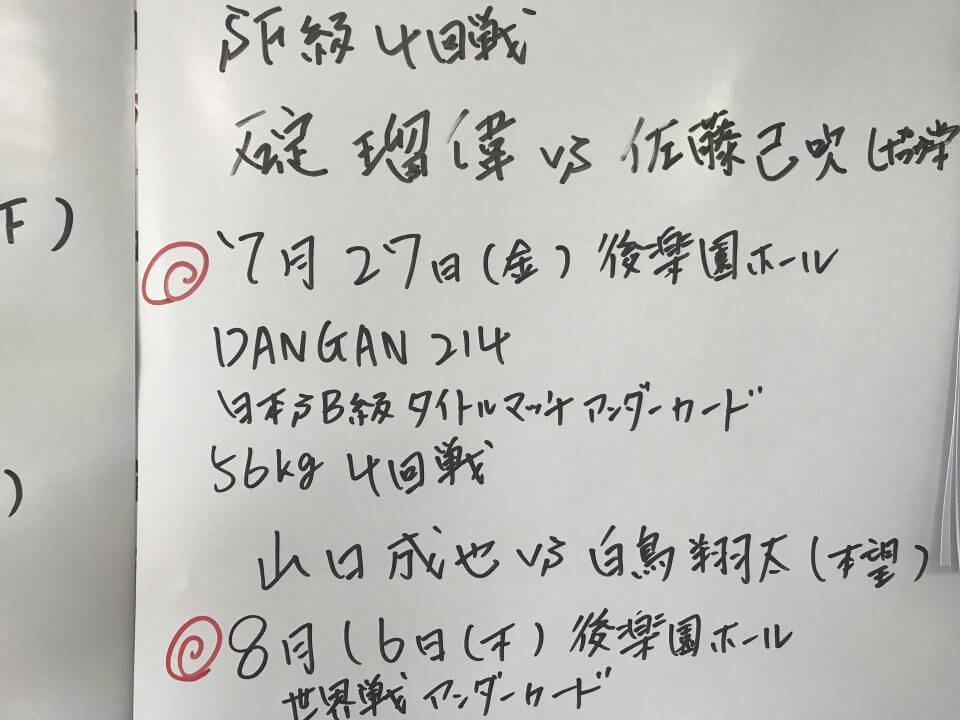 SF級 4回戦
碇 瑠偉 vs 佐藤己吹
F)
7月27日(金) 後楽園ホール
DANGAN 214
日本SB級タイトルマッチアンダーカード
)
56kg 4回戦
山口成也 vs 白鳥翔太(本望)
8月16日(木) 後楽園ホール
世界戦アンダーカード